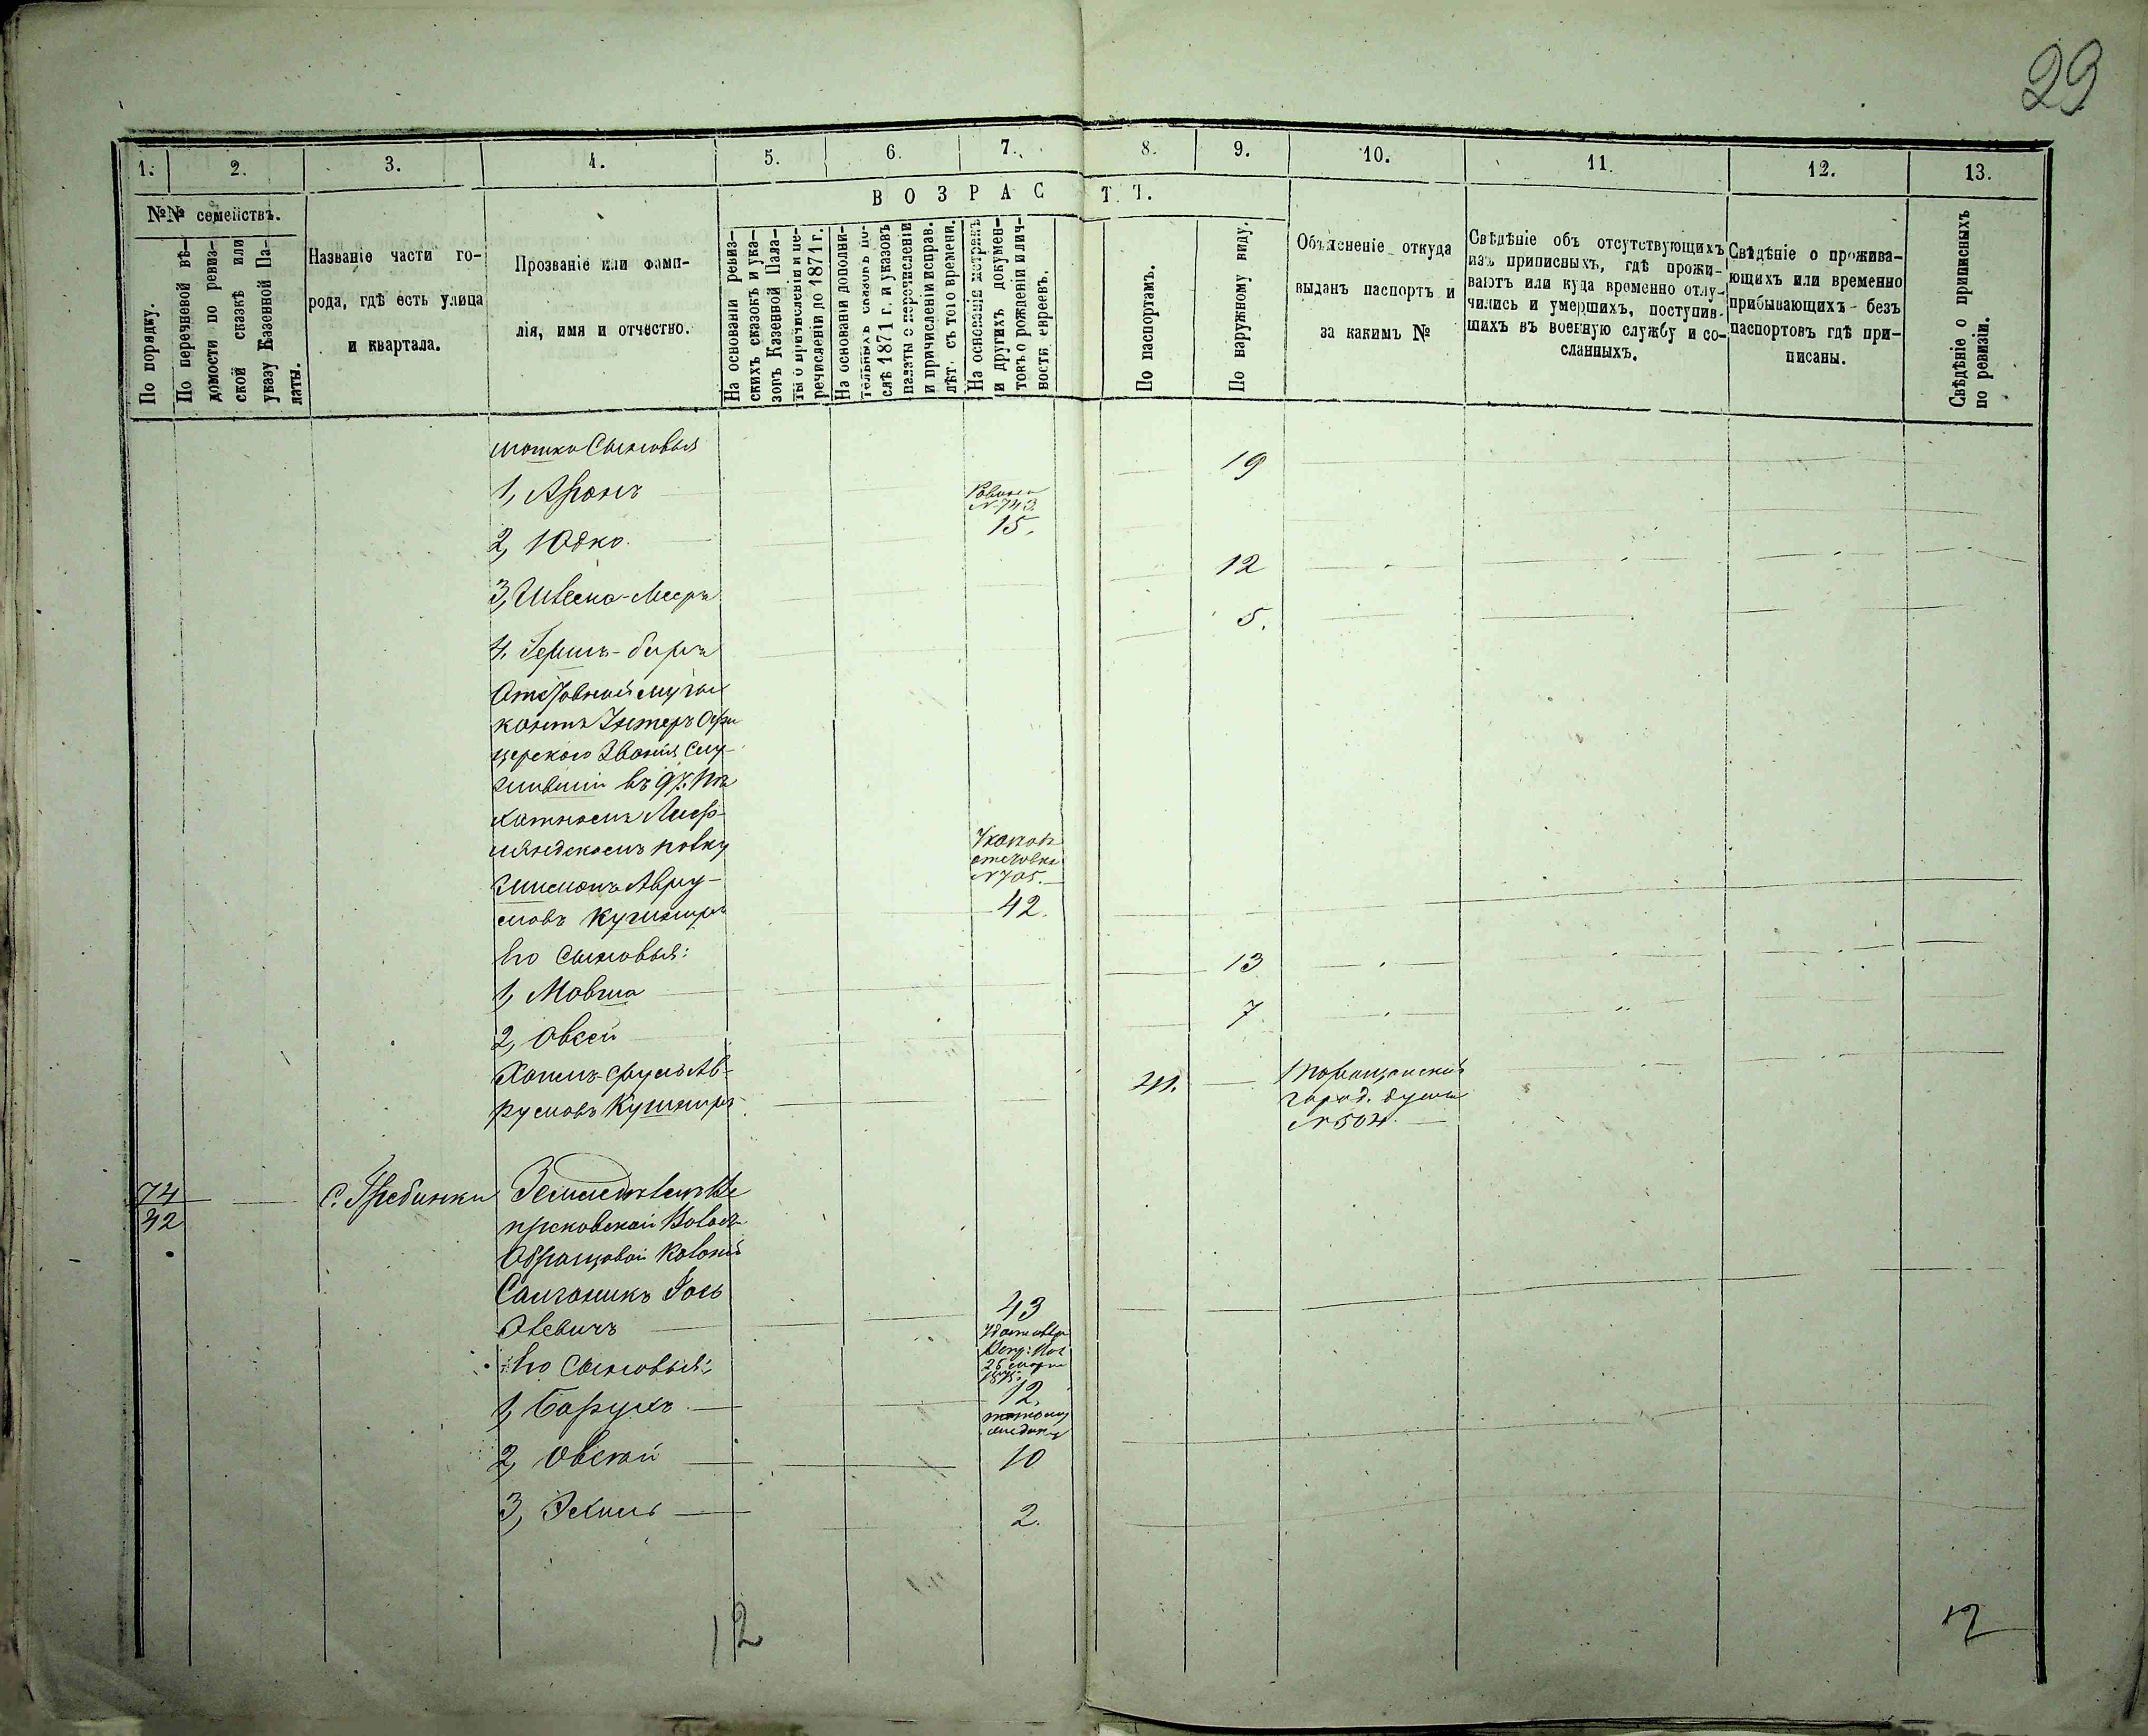 29
1. 2. 3. 4. 5. 6. 7. 8. 9. 10. 11. 12. 13.
№№ семействъ.
По порядку.
По перечневой вѣ-
домости по ревиз-
ской сказкѣ или
указу Казенной Па-
латы.
Названіе части го-
рода, гдѣ есть улица
и квартала.
Прозваніе или фами-
лія, имя и отчество.
ВОЗРАСТЪ.
На основаніи ревиз-
скихъ сказокъ и ука-
зовъ Казенной Пала-
ты о причисленіи и пе-
речисленіи до 1871 г.
На основаніи дополни-
тельныхъ сказокъ по-
слѣ 1871 г. и указовъ
палаты о перечисленіи
и причисленіи исправ.
лѣт. съ того времени.
На основаніи метрикъ
и другихъ докумен-
товъ о рожденіи и лич-
ности евреевъ.
По паспортамъ.
По наружному виду.
Объясненіе откуда
выданъ паспортъ и
за какимъ №
Свѣдѣніе объ отсутствующихъ
изъ приписныхъ, гдѣ прожи-
ваютъ или куда временно отлу-
чились и умершихъ, поступив-
шихъ въ военную службу и со-
сланныхъ.
Свѣдѣніе о прожива-
ющихъ или временно
прибывающихъ безъ
паспортовъ гдѣ при-
писаны.
Свѣдѣніе о приписныхъ
по ревизіи.
мошко Сыновья
1, Аронъ 19
№ 743.
2, Юдко 15.
3, Меръ 12
4, Гершъ-Беръ 5.
Отставной музы
кантъ Унтеръ Офи
церскаго Званія Слу-
жившій въ 97. Пѣ
хотномъ Лиф-
ляндскомъ полку
отставки
№ 705.
Шимонъ Авру-
мовъ Кушниръ 42.
Его Сыновья:
1, Мовша 13
2, Овсей 7
Хаимъ-Сруль Ав-
румовъ Кушниръ 41. Таращанской
город. думы
№ 504.
74
42
С. Гребинки
Волост.
Образцовой Колоніи
43
Его Сыновья:
25 марта
1875.
1, Барухъ 12.
2, Овсей 10
3, Эхиль 2.
12
12